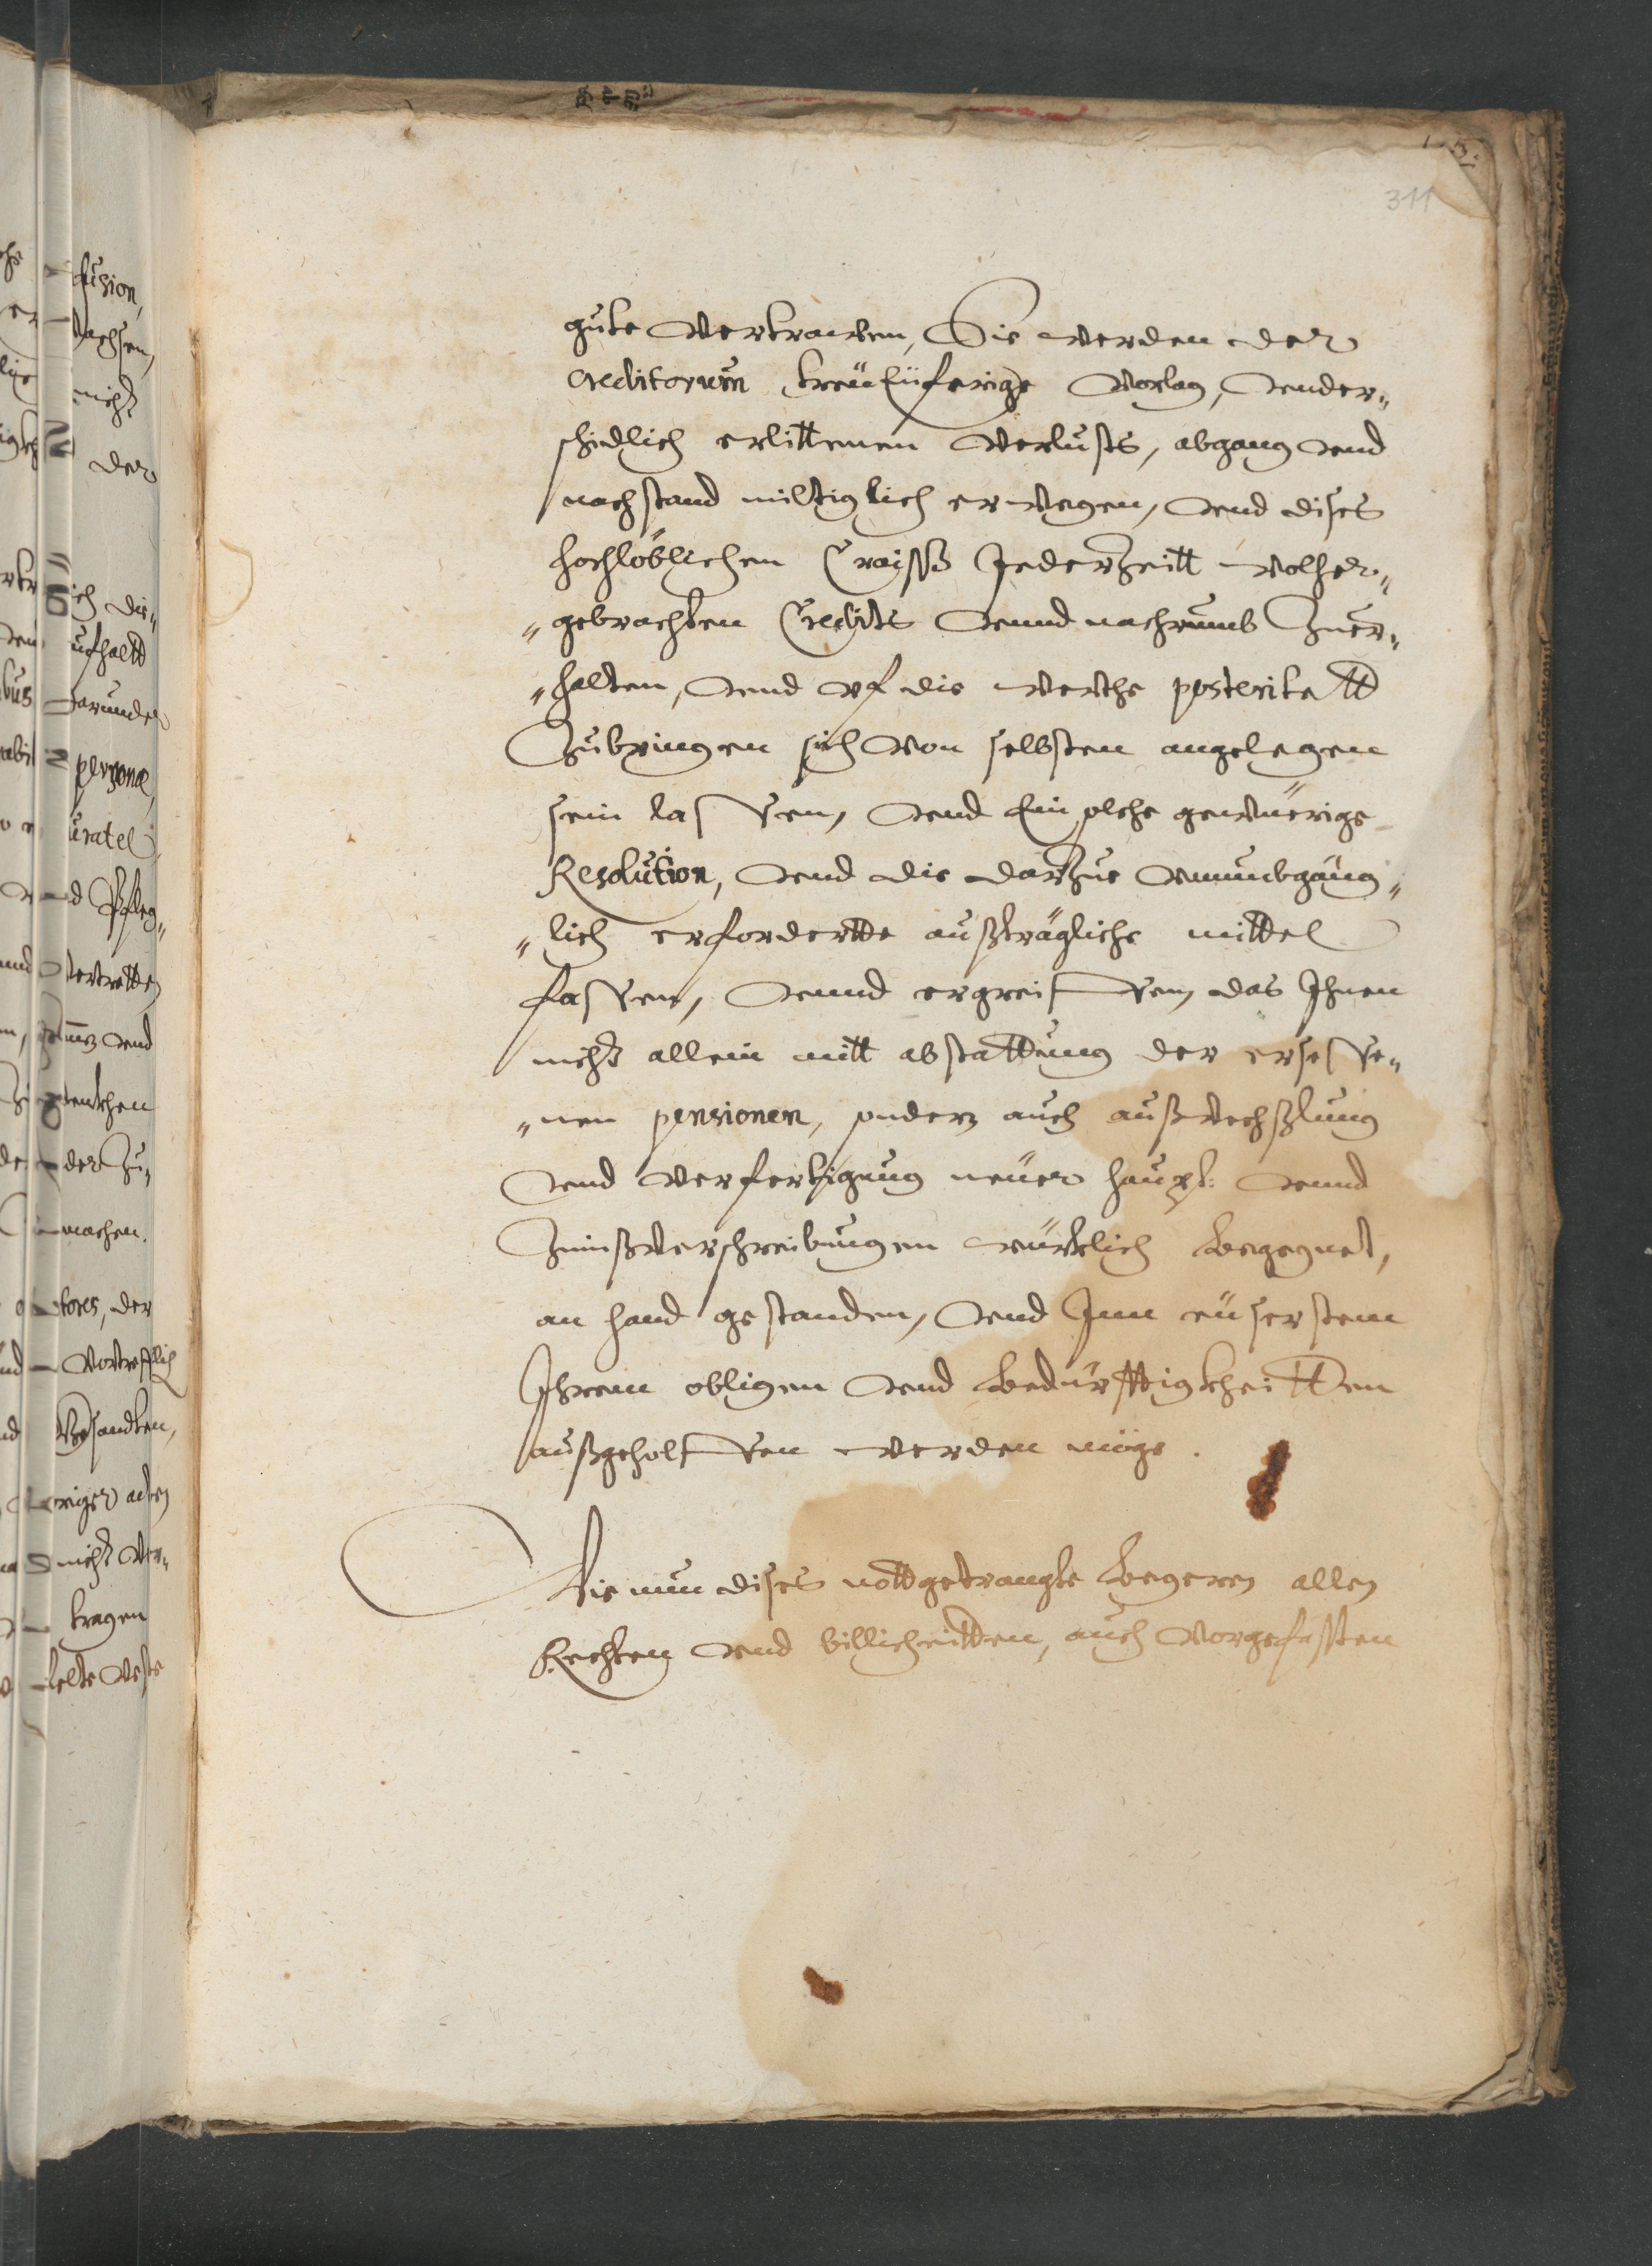 311
gute vertrawen, Sie werden der
Creditorum treüeüferige vorlag, vnder„
schidlich erlittenen verlusts, abgang vnd
nachstand miltiglich erwegen, vnd dises
hochlöblichen Craißs Jederzeitt wolher„
„gebrachten Credits vnnd nachrumb Zuer„
„halten, vnd vf die werthe posteritett
Zubringen sich von selbsten angelegen
sein lassen, vnd Ein solche gewüerige
Resolution, vnd die darzue vnumbgäng„
„lich erforderte außträgliche mittel
fassen, vnnd ergreiffen, das Ihnen
nicht allein mitt abstattung der ersesse„
„nen pensionen, sonders auch außwechßlung
vnd verfertigung neüer haupt: vnnd
Zinnßverschreibungen würklich begegnet,
an hand gestanden, vnd Inn eüserstem
Ihrem obligen vnd bedürfftigkheitten
außgeholffen werden möge.
Wie nun dises nottgetrangte begeren allen
Rechten vnd billicheitten, auch vorgefassten